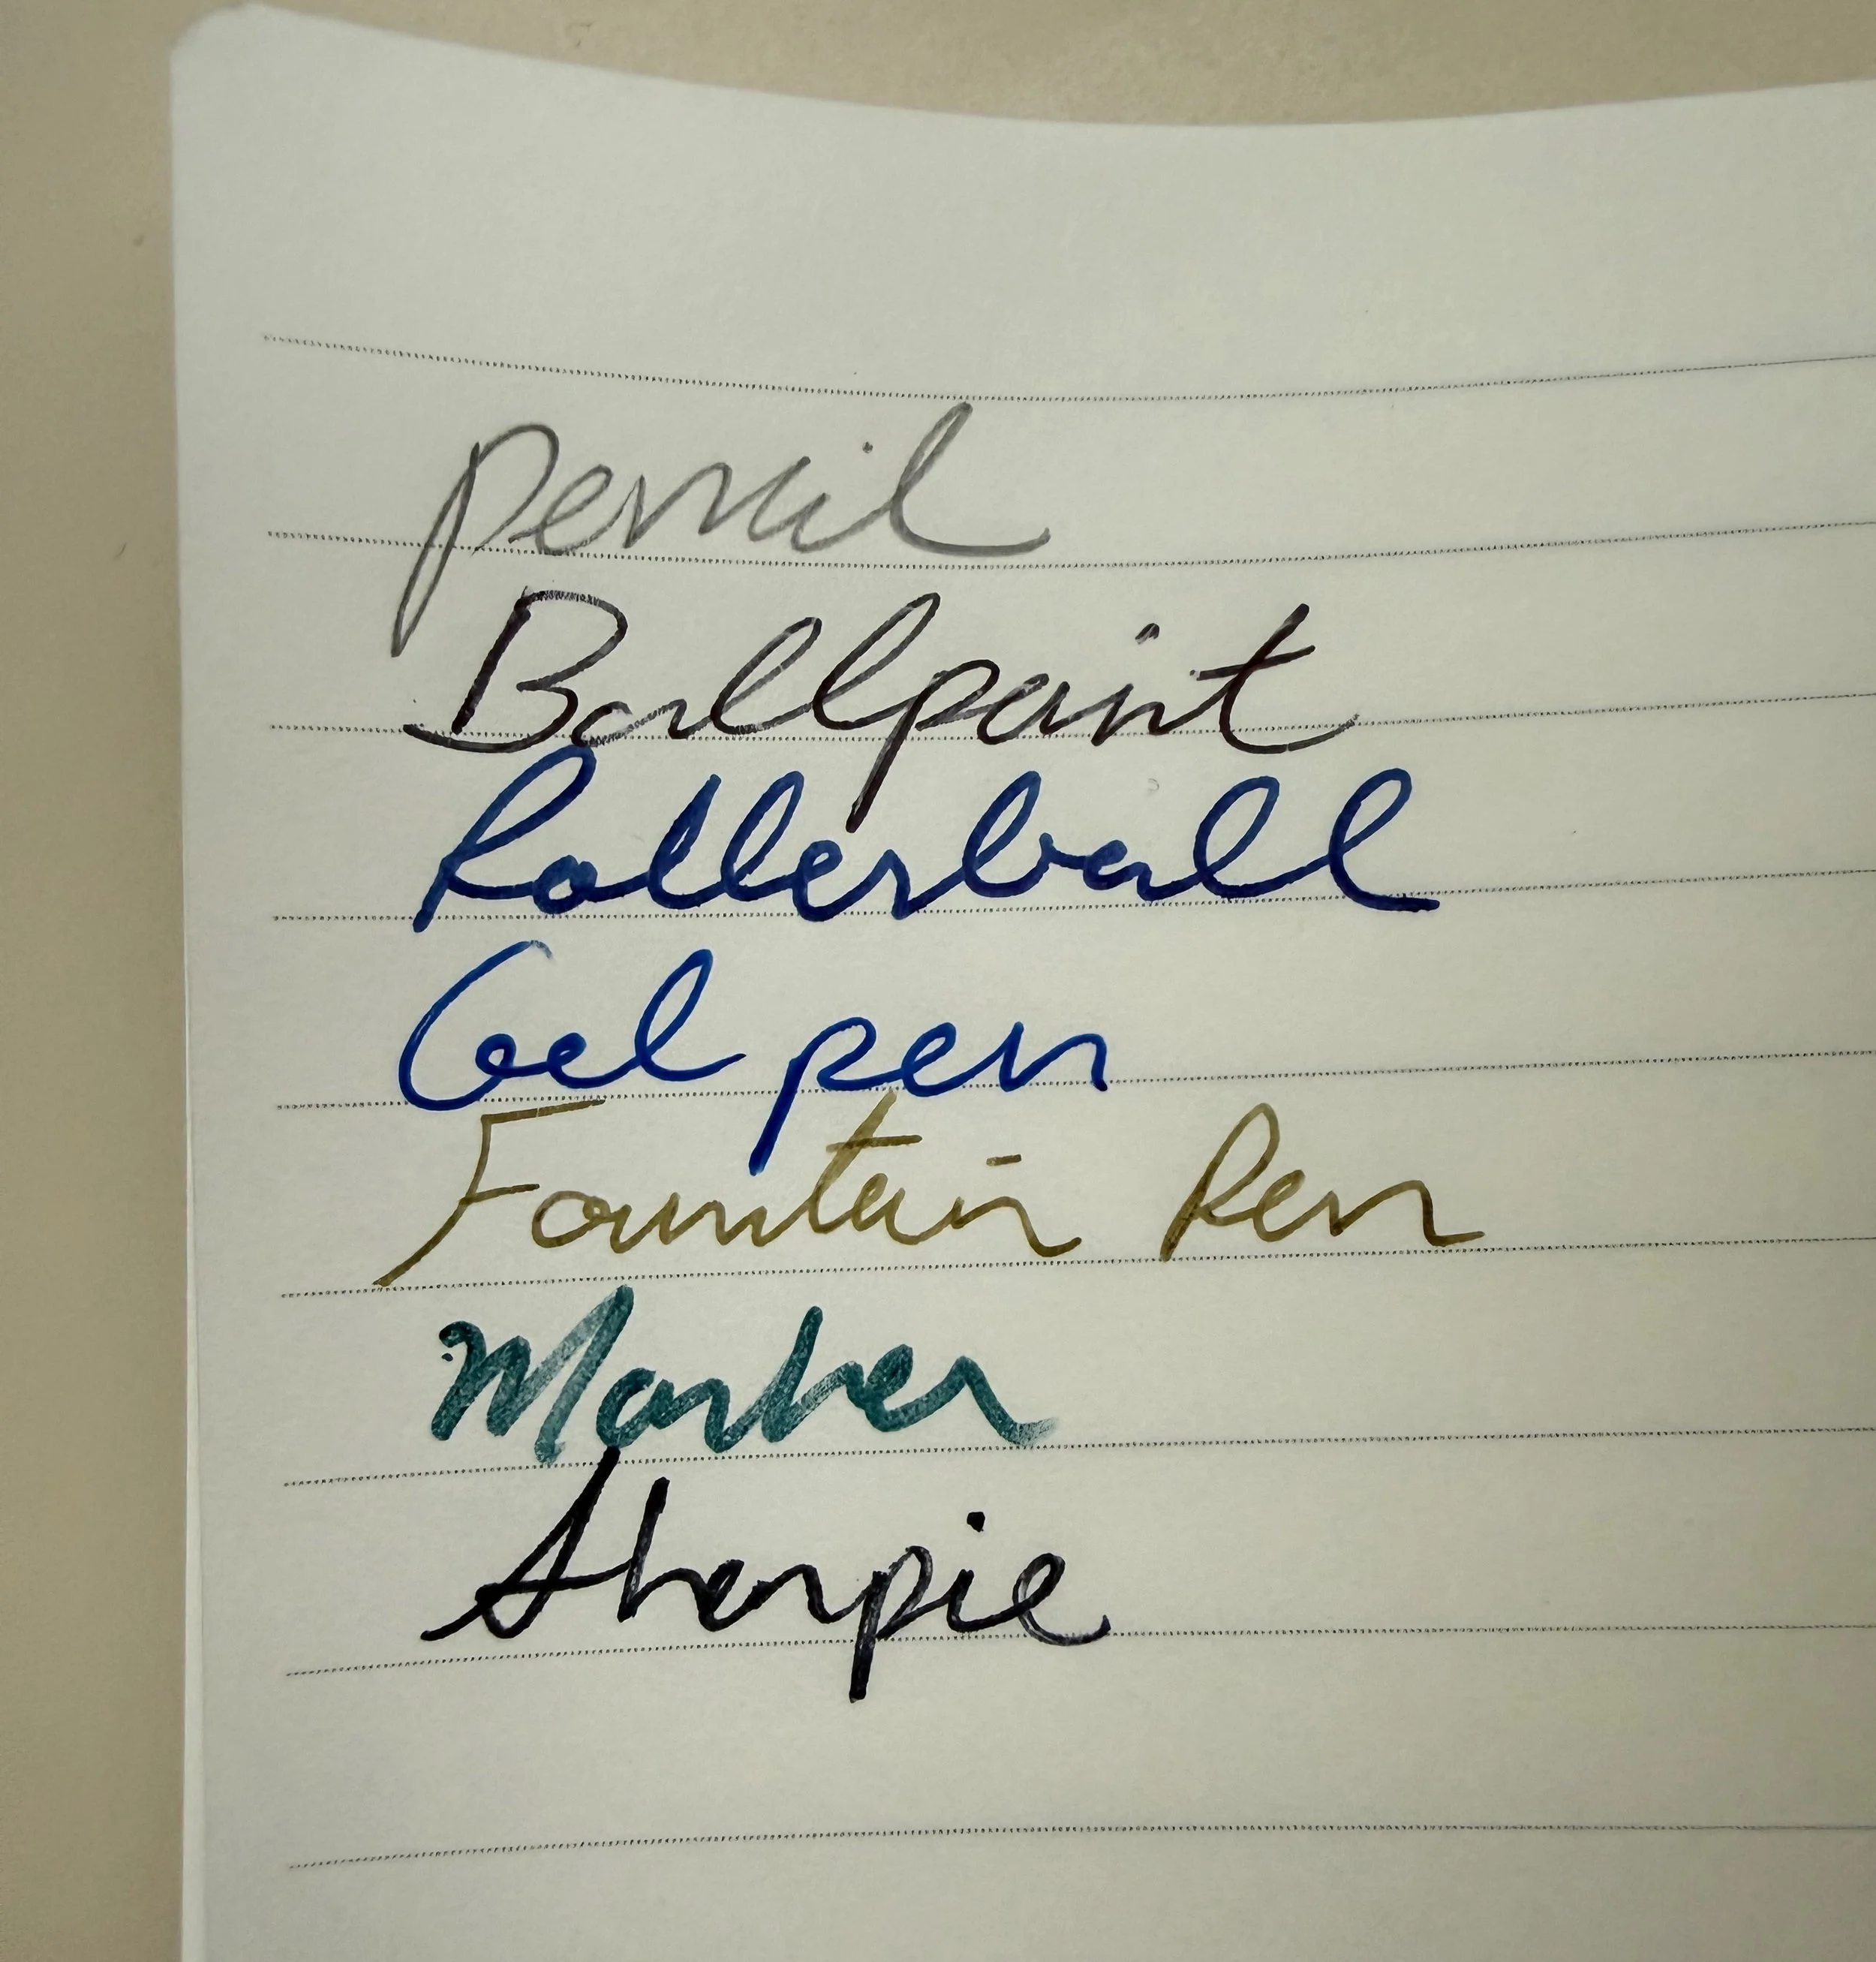 pencil
Ballpoint
Rollerball
Gel pen
Fountain Pen
Marker
Sharpie